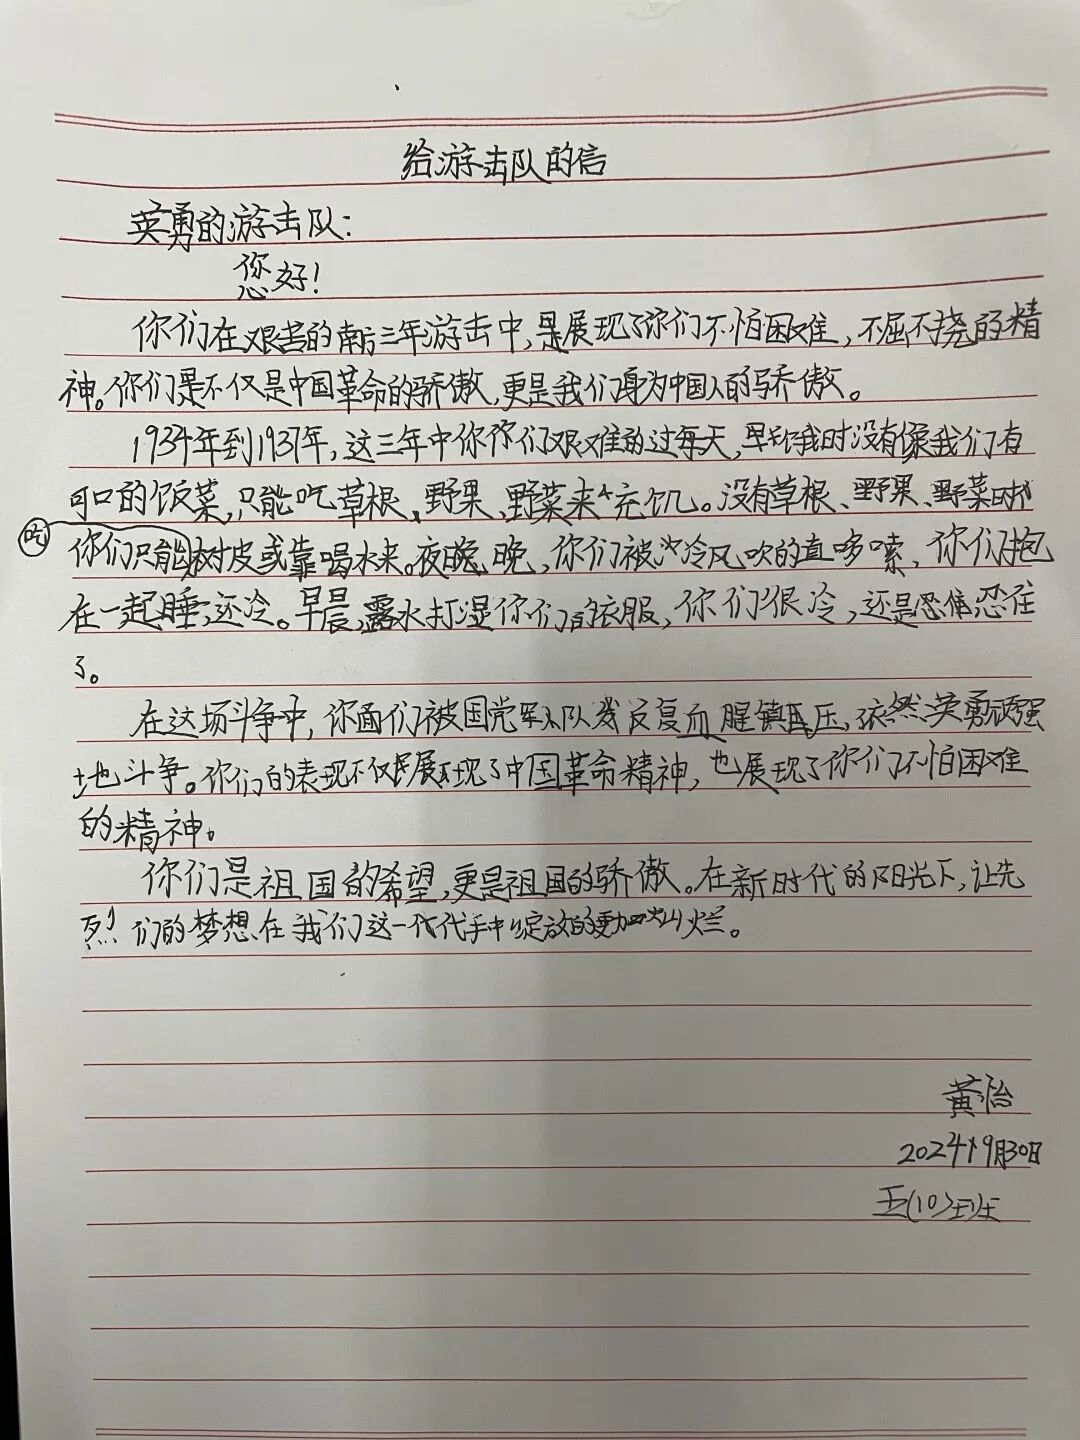 给游击队的信
英勇的游击队：
您好！
你们在艰苦的南方三年游击中，是展现了你们不怕困难，不屈不挠的精
神。你们是不仅是中国革命的骄傲，更是我们身为中国人的骄傲。
1934年到1937年，这三年中你你们艰难的过每天，那时没有像我们有
可口的饭菜，只能吃草根、野果、野菜来充饥。没有草根、野果、野菜时
吃
你们只能树皮或靠喝水来。夜晚晚，你们被冷风吹的直哆嗦，你们抱
在一起睡，还冷。早晨，露水打湿你们的衣服，你们很冷，还是忍住
了。
在这场斗争中，你面们被国党军队反复血腥镇压，依然英勇顽强
地斗争。你们的表现不仅展现了中国革命精神，也展现了你们不怕困难
的精神。
你们是祖国的希望，更是祖国的骄傲。在新时代的阳光下，让先
烈们的梦想在我们这一代代手中绽放的更加灿烂。
黄怡
2024年9月30日
五(10)班